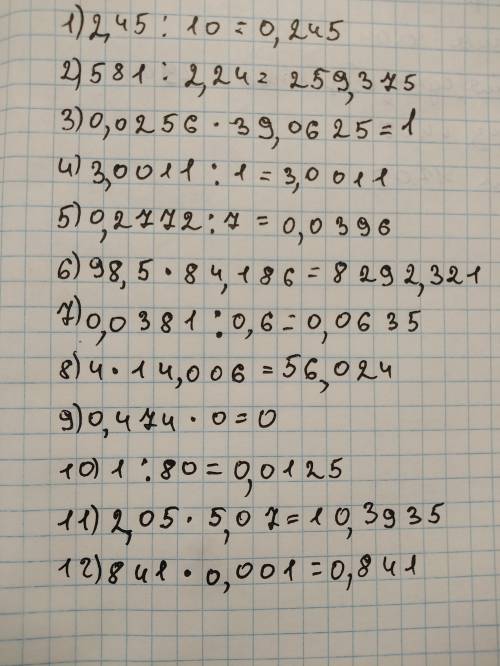 1) 2,45 : 10 = 0,245
2) 581 : 2,24 = 259,375
3) 0,0256 · 39,0625 = 1
4) 3,0011 : 1 = 3,0011
5) 0,2772 : 7 = 0,0396
6) 98,5 · 84,186 = 8292,321
7) 0,0381 : 0,6 = 0,0635
8) 4 · 14,006 = 56,024
9) 0,474 · 0 = 0
10) 1 : 80 = 0,0125
11) 2,05 · 5,07 = 10,3935
12) 841 · 0,001 = 0,841